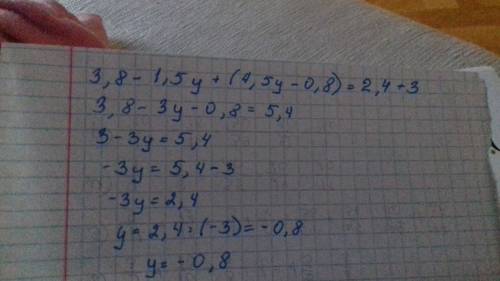 3,8 - 1,5y + (4,5y - 0,8) = 2,4 + 3
3,8 - 3y - 0,8 = 5,4
3 - 3y = 5,4
-3y = 5,4 - 3
-3y = 2,4
y = 2,4 : (-3) = -0,8
y = -0,8